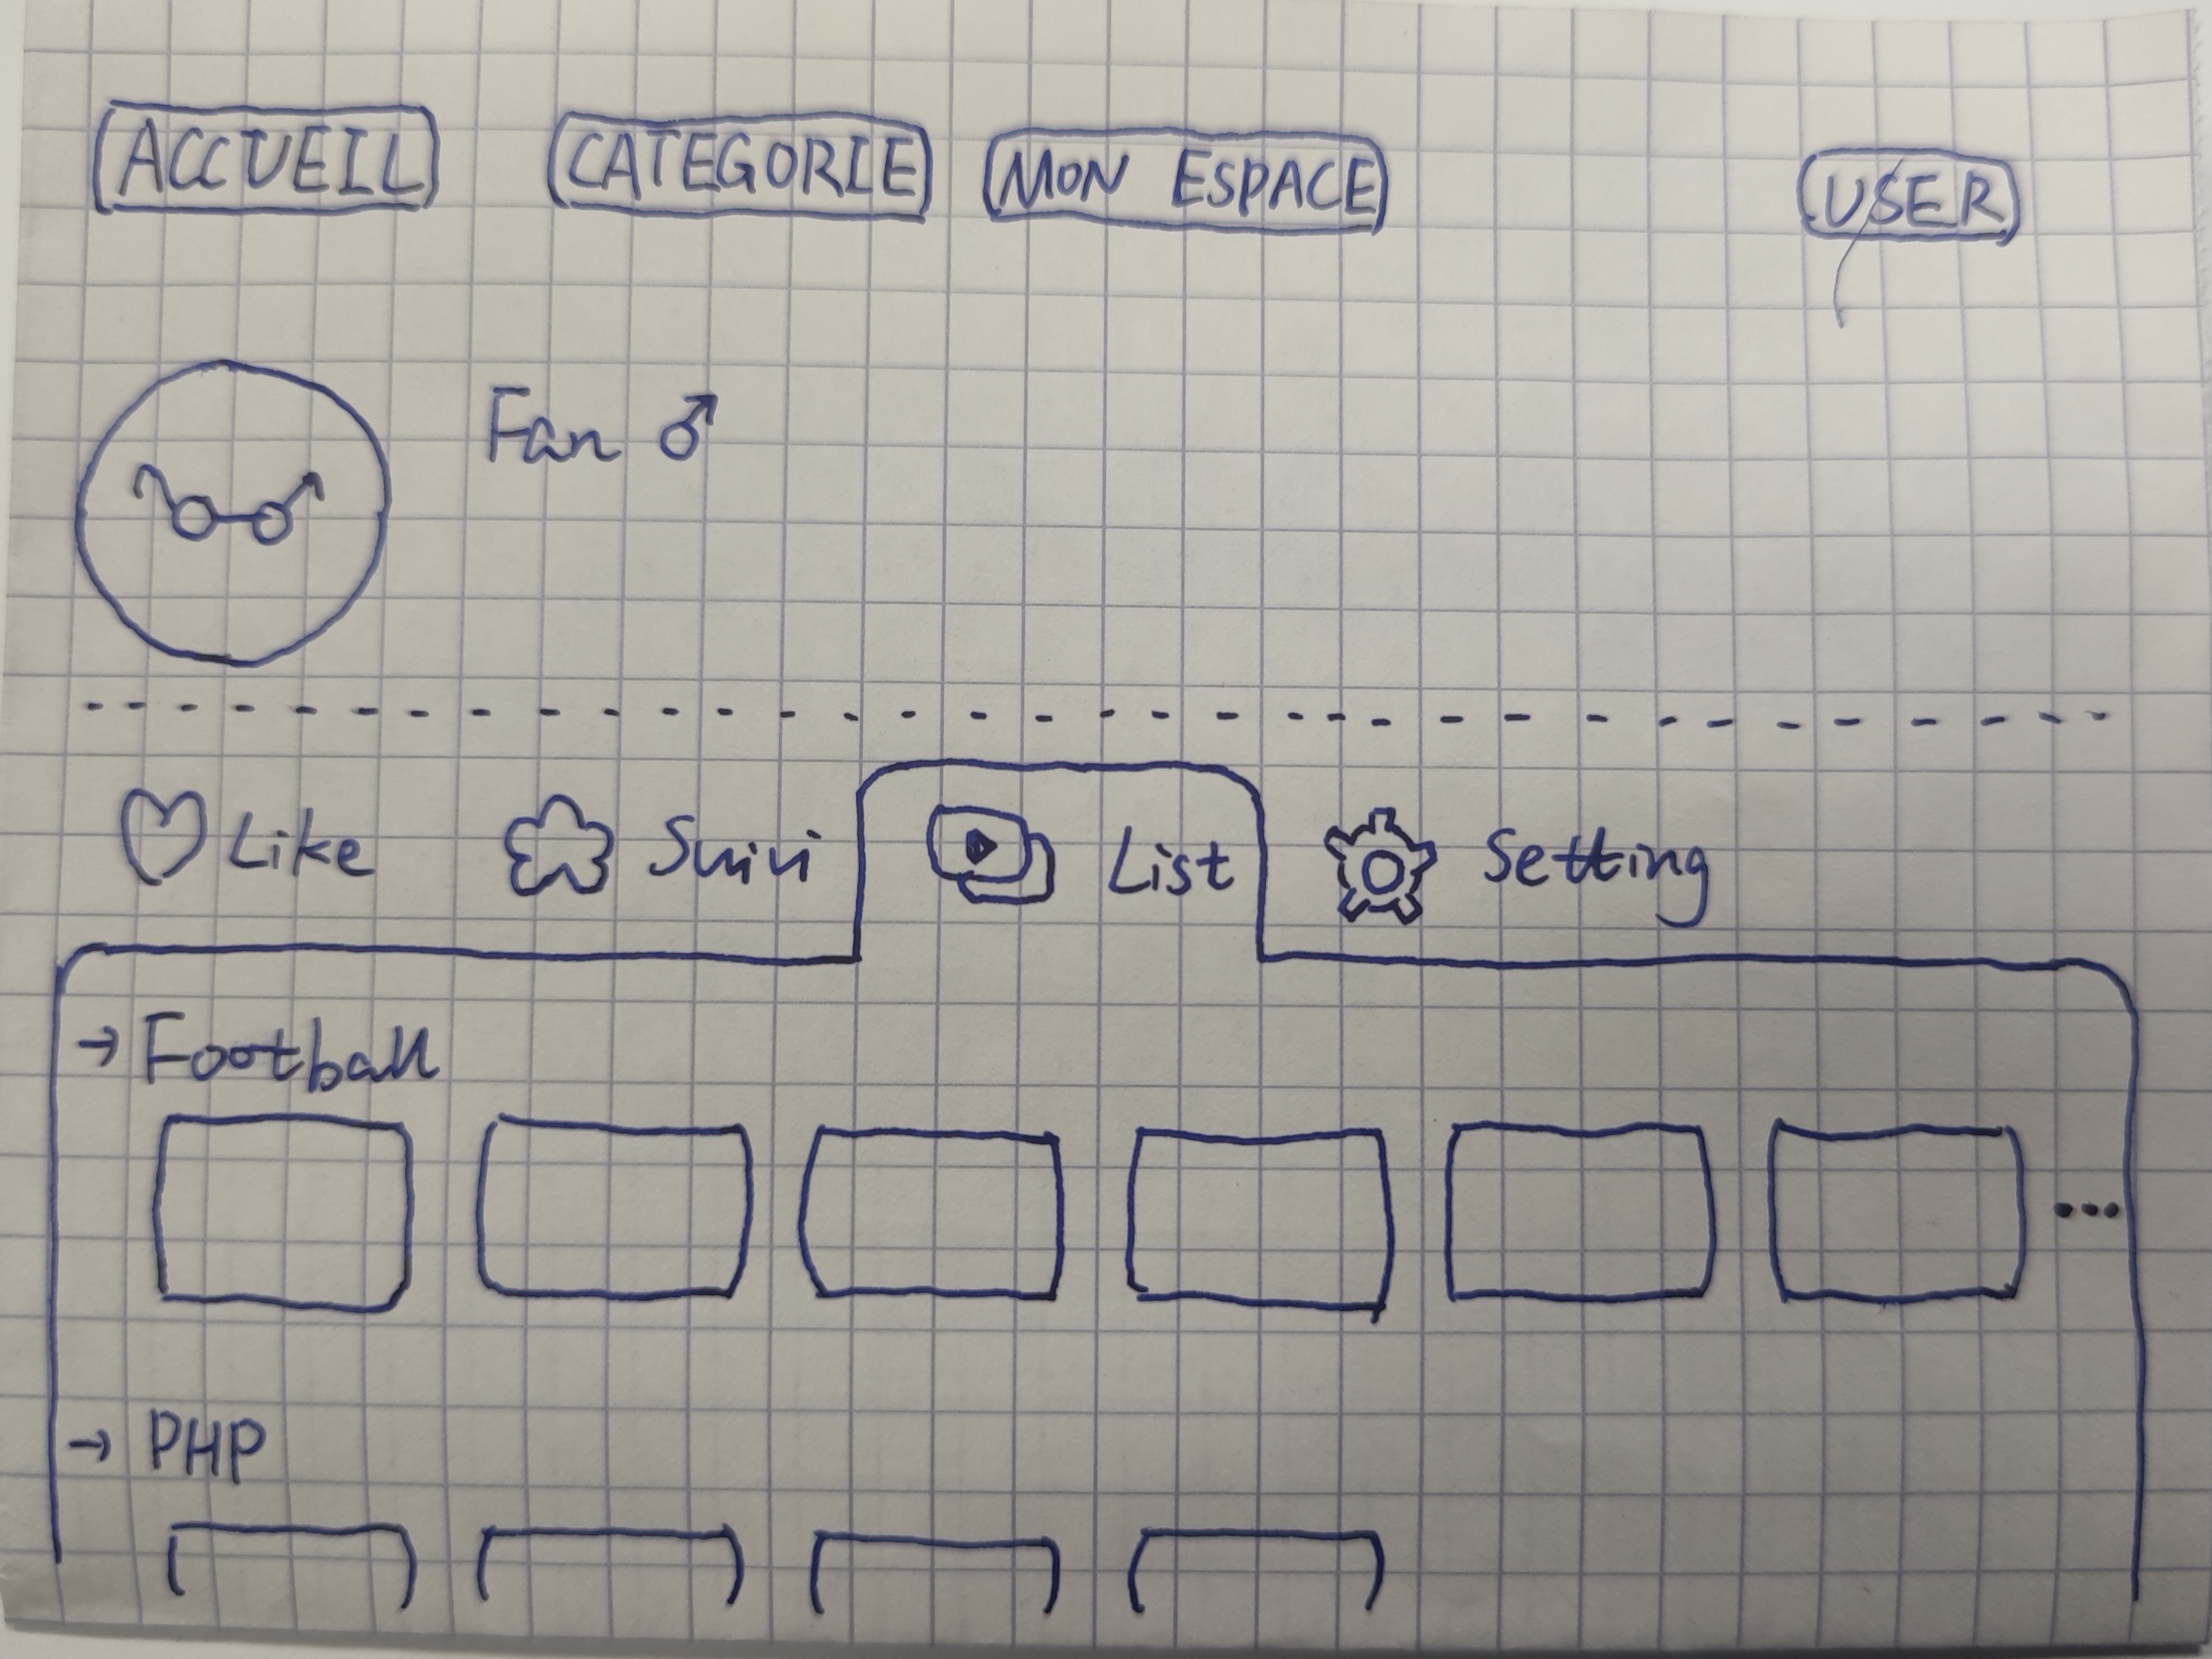 ACCUEIL CATEGORIE MON ESPACE USER
Fan ♂
Like Suivi List Setting
→ Football
...
→ PHP